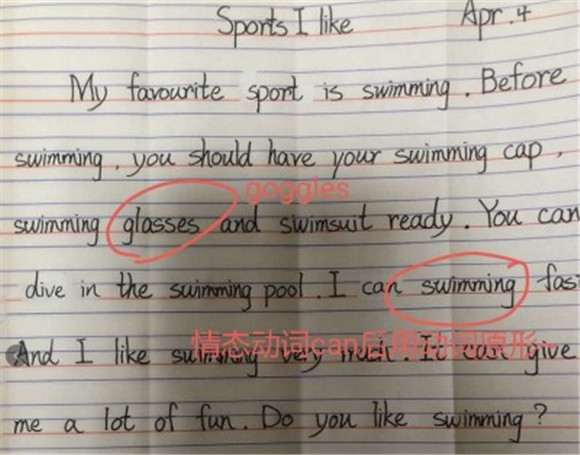 Sports I like Apr. 4
My favourite sport is swimming. Before
swimming, you should have your swimming cap,
goggles
swimming glasses and swimsuit ready. You can
dive in the swimming pool. I can swimming
情态动词can后用动词原形~
And I like swimming very much. It can give
me a lot of fun. Do you like swimming?